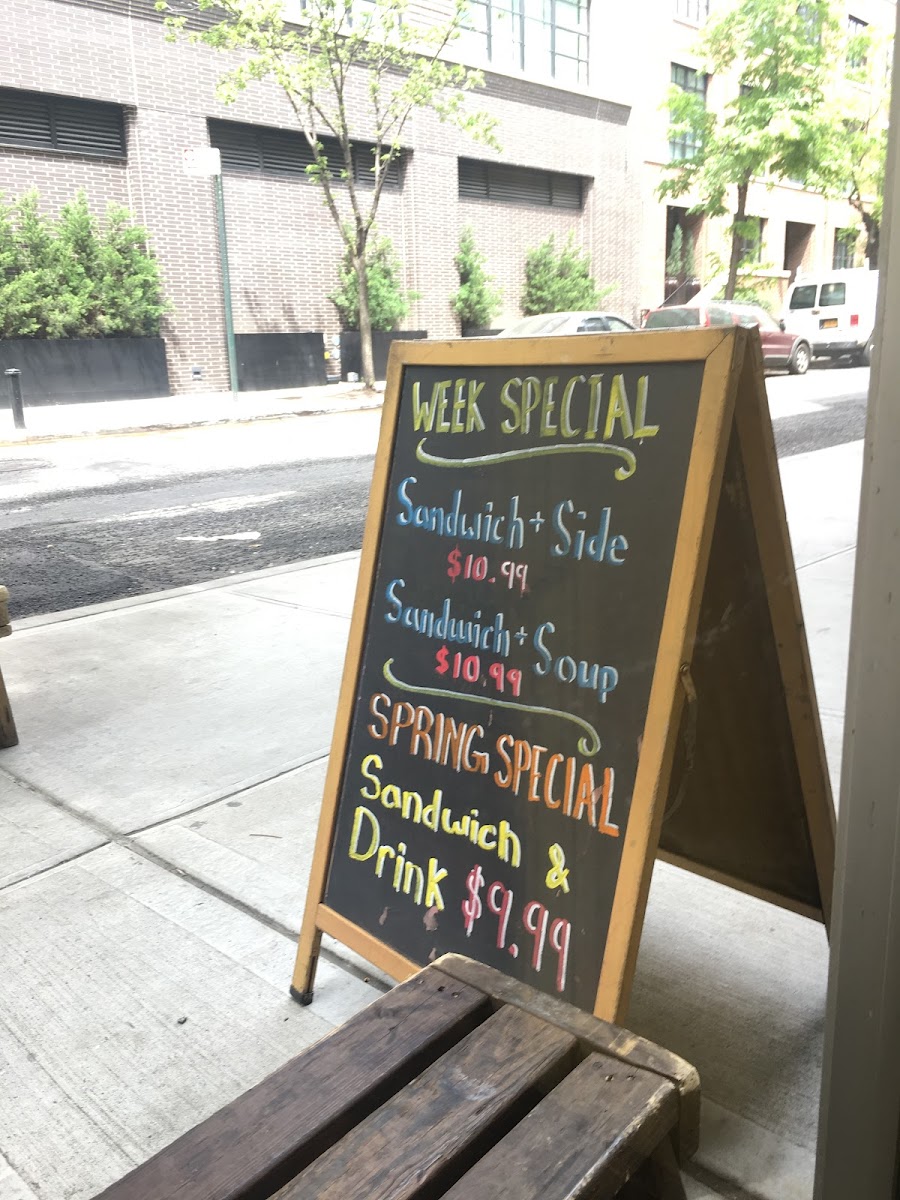 WEEK SPECIAL
Sandwich + Side
$10.99
Sandwich + Soup
$10.99
SPRING SPECIAL
Sandwich &
Drink $9.99